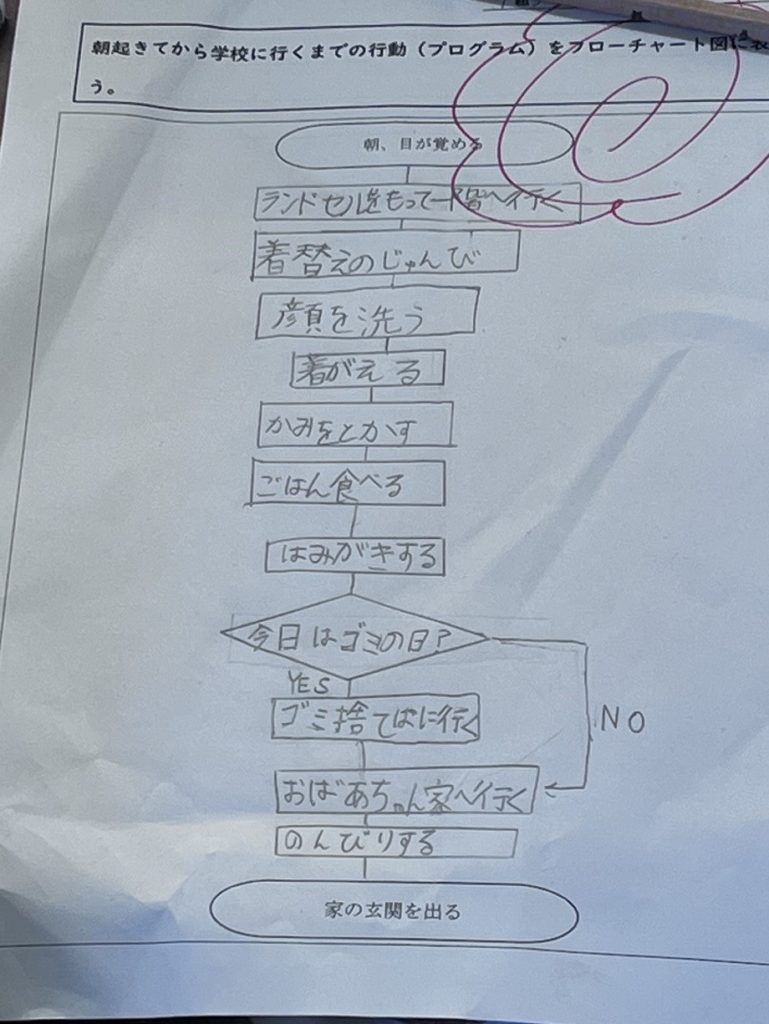 朝起きてから学校に行くまでの行動（プログラム）をフローチャート図に表
う。
朝、目が覚める
ランドセルをもって一階へ行く
着替えのじゅんび
顔を洗う
着がえる
かみをとかす
ごはん食べる
はみがきする
今日はゴミの日?
YES
ゴミ捨てばに行く
NO
おばあちゃん家へ行く
のんびりする
家の玄関を出る